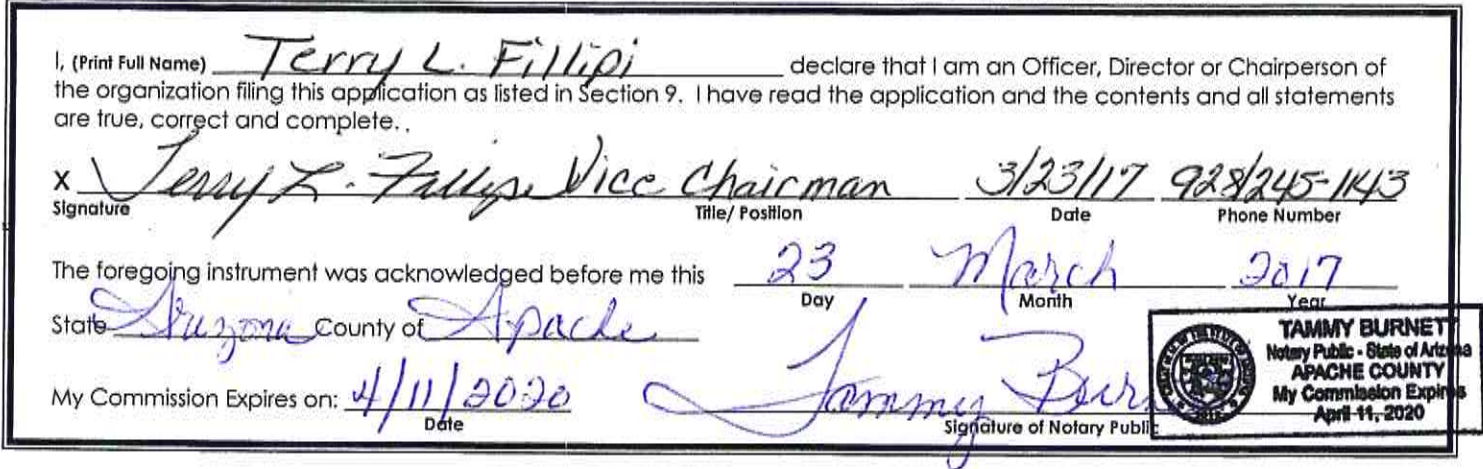 I, (Print Full Name) Terry L. Fillipi declare that I am an Officer, Director or Chairperson of
the organization filing this application as listed in Section 9. I have read the application and the contents and all statements
are true, correct and complete.
X Terry L. Fillipi Vice Chairman 3/23/17 928/245-1143
Signature Title/ Position Date Phone Number
The foregoing instrument was acknowledged before me this 23 March 2017
Day Month Year
State Arizona County of Apache
My Commission Expires on: 4/11/2020 Tammy Burn
Date Signature of Notary Public
TAMMY BURNETT
Notary Public - State of Arizona
APACHE COUNTY
My Commission Expires
April 11, 2020